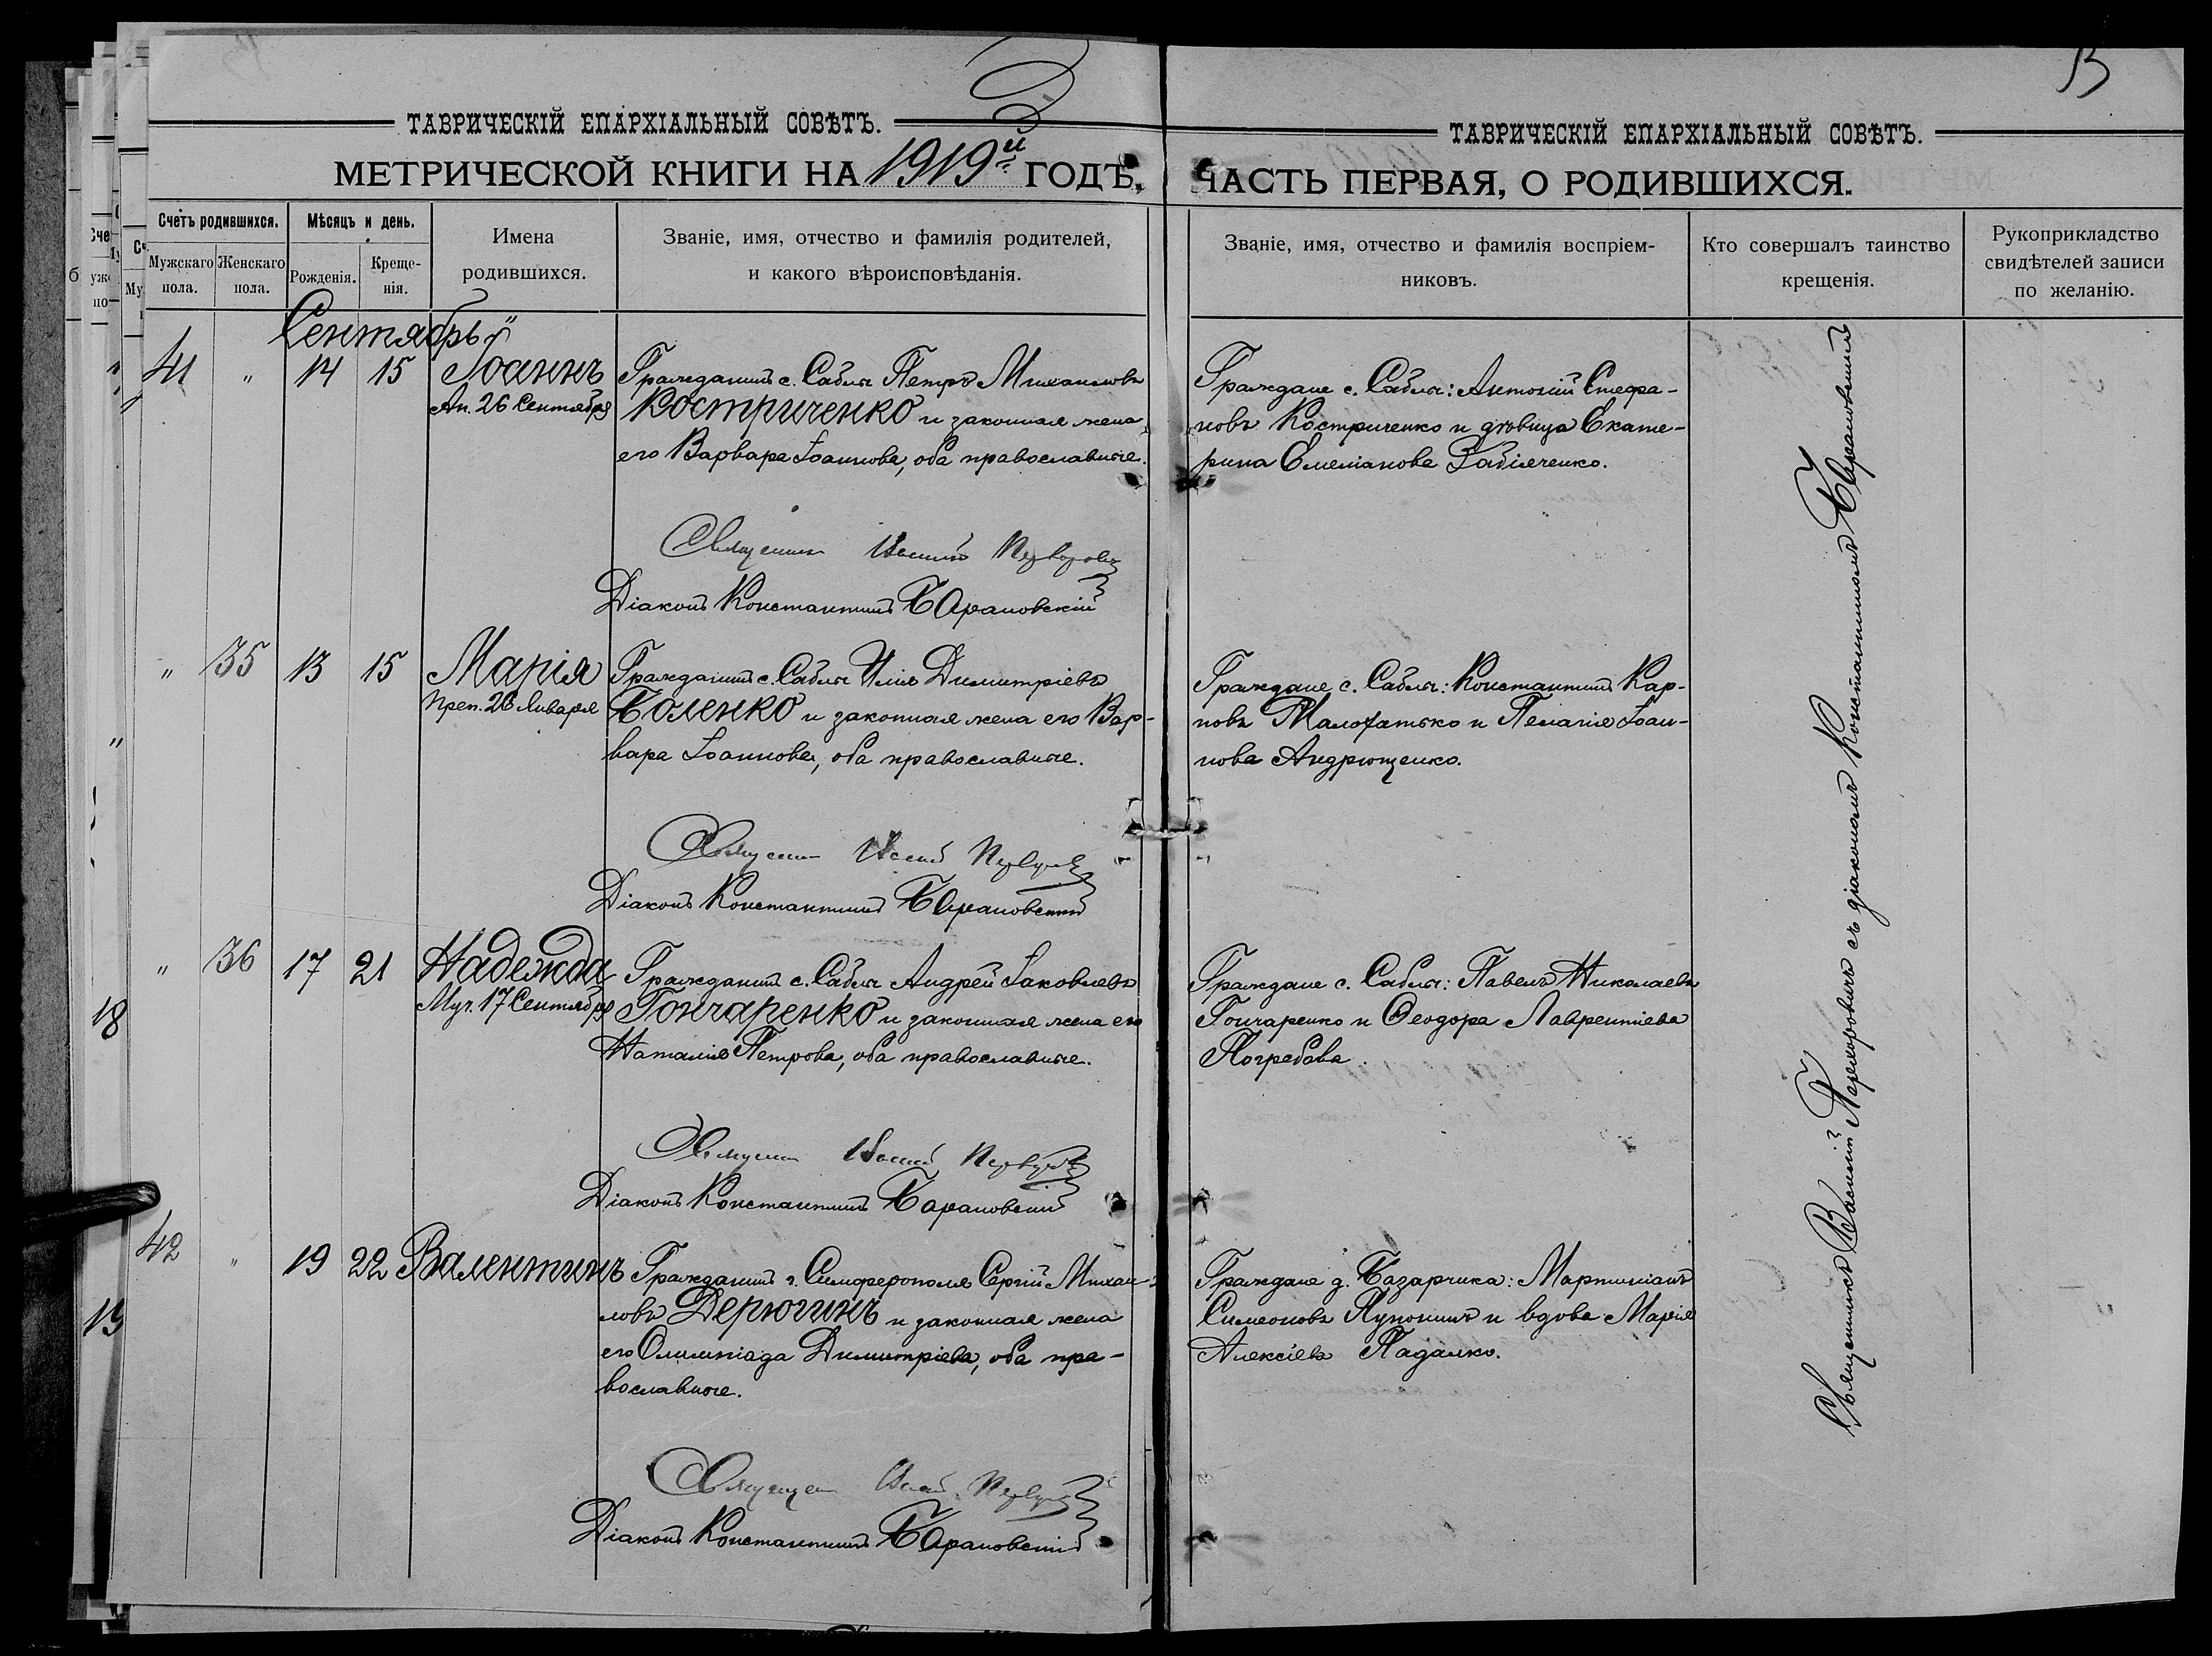 13
ТАВРИЧЕСКІЙ ЕПАРХІАЛЬНЫЙ СОВѢТЪ.
МЕТРИЧЕСКОЙ КНИГИ НА 1919й ГОДЪ,
Счетъ родившихся.
Мужскаго пола.
Женскаго пола.
Мѣсяцъ и день.
Рожденія.
Креще-
нія.
Имена
родившихся.
Званіе, имя, отчество и фамилія родителей,
и какого вѣроисповѣданія.
ТАВРИЧЕСКІЙ ЕПАРХІАЛЬНЫЙ СОВѢТЪ.
ЧАСТЬ ПЕРВАЯ, О РОДИВШИХСЯ.
Званіе, имя, отчество и фамилія воспріем-
никовъ.
Кто совершалъ таинство
крещенія.
Рукоприкладство
свидѣтелей записи
по желанію.
Сентябрь
41 " 14 15 Іоаннъ
Ап. 26 Сентября
Гражданинъ с. Саблы Петръ Михаиловъ
Костриченко и законная жена
его Варвара Іоаннова, оба православные.
Священникъ Василій
Діаконъ Константинъ Барановскій
Граждане с. Саблы: Антоній Стефа-
новъ Костриченко и дѣвица Екате-
рина Емеліанова Забіяченко.
" 35 13 15 Марія
Преп. 26 Января
Гражданинъ с. Саблы Илія Димитріевъ
Боленко и законная жена его Вар-
вара Іоаннова, оба православные.
Священникъ Василій
Діаконъ Константинъ Барановскій
Граждане с. Саблы: Константинъ Кар-
повъ Малофатько и Пелагія Іоан-
нова Андрющенко.
" 36 17 21 Надежда
Муч. 17 Сентября
Гражданинъ с. Саблы Андрей Іаковлевъ
Гончаренко и законная жена его
Наталія Петрова, оба православные.
Священникъ Василій
Діаконъ Константинъ Барановскій
Граждане с. Саблы: Павелъ Николаевъ
Гончаренко и Ѳеодора Лаврентіева
Погребова.
42 " 19 22 Валентинъ
Гражданинъ г. Симферополя Сергій Михаи-
ловъ Дерюгинъ и законная жена
его Олимпіада Димитріева, оба пра-
вославные.
Священникъ Василій
Діаконъ Константинъ Барановскій
Граждане д. Базарчика: Мартиніанъ
Симеоновъ Пупонинъ и вдова Марія
Алексіева Падалко.
Священникъ Василій съ діакономъ Константиномъ Барановскимъ
18
19